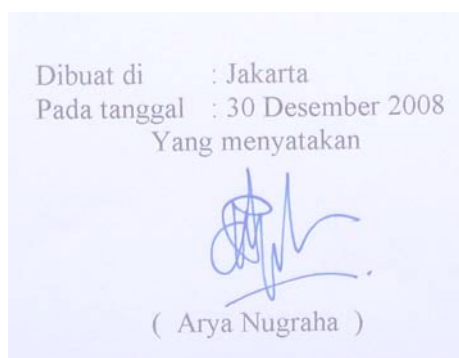 Dibuat di : Jakarta
Pada tanggal : 30 Desember 2008
Yang menyatakan
( Arya Nugraha )